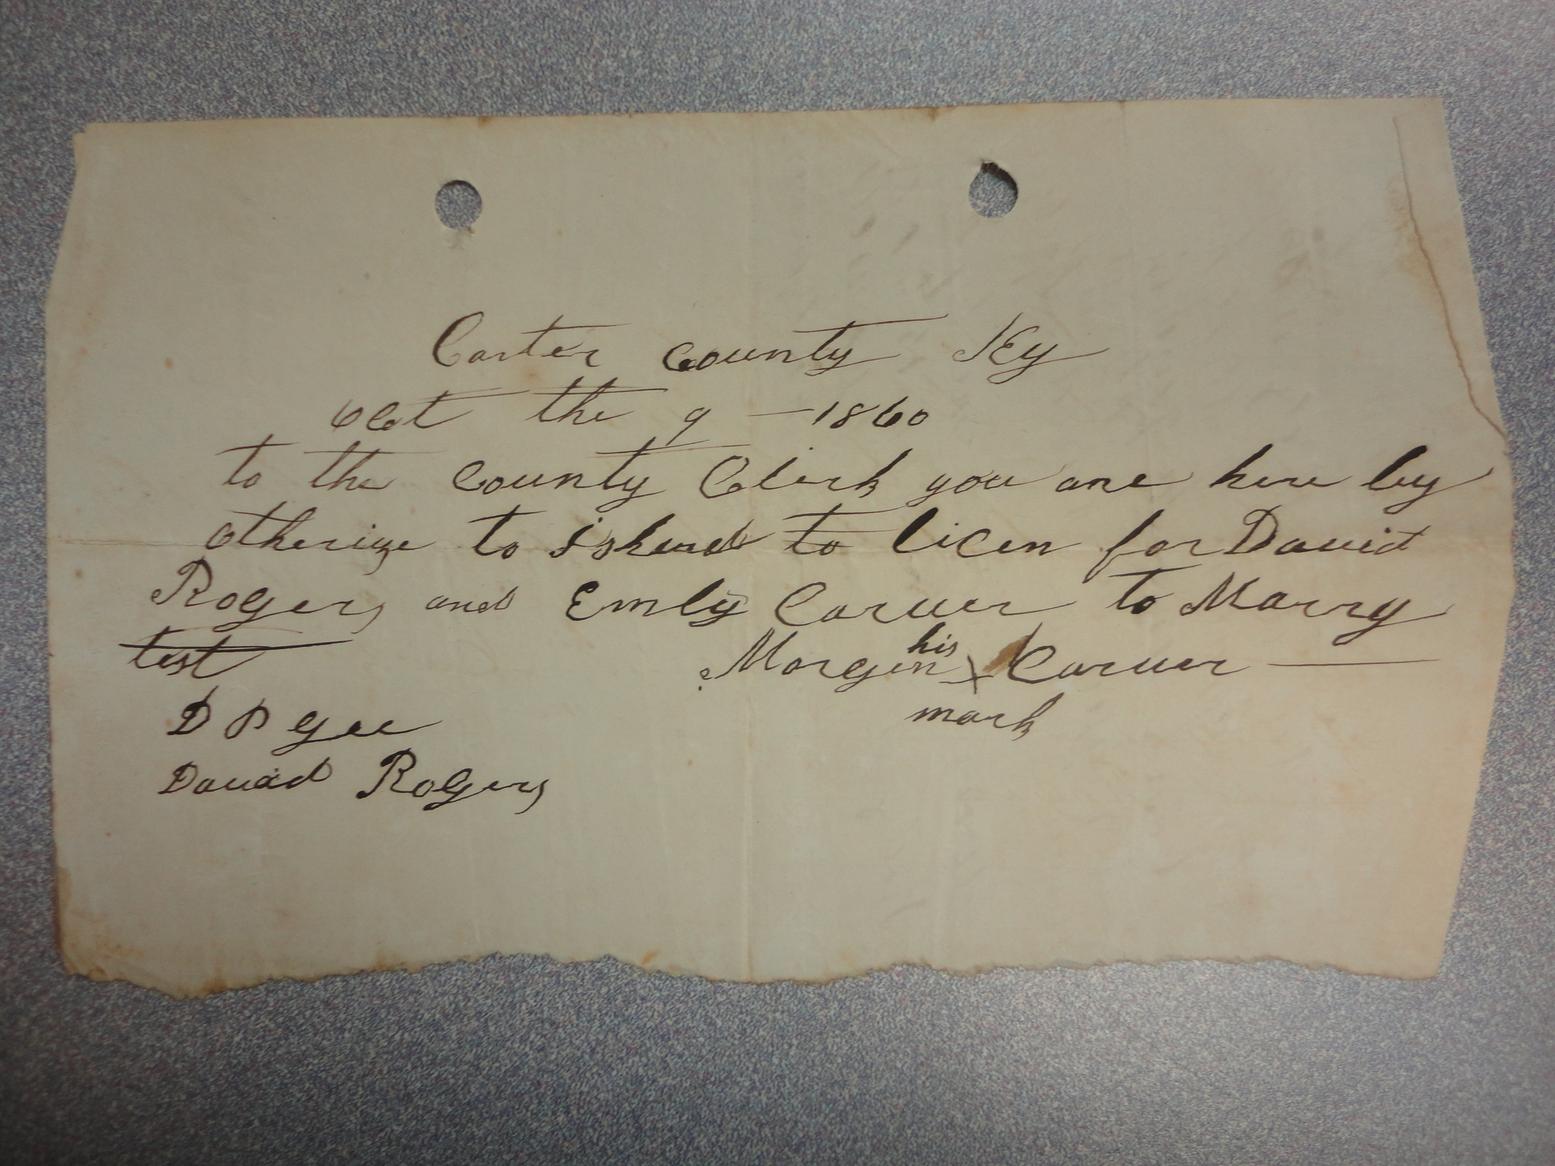 Carter County Ky
Oct the 9 — 1860
to the County Clerk you are here by
otherize to ishued to licen for David
Rogers and Emly Carver to Marry
test Morgin his X Carver —
mark
D P Gee
David Rogers